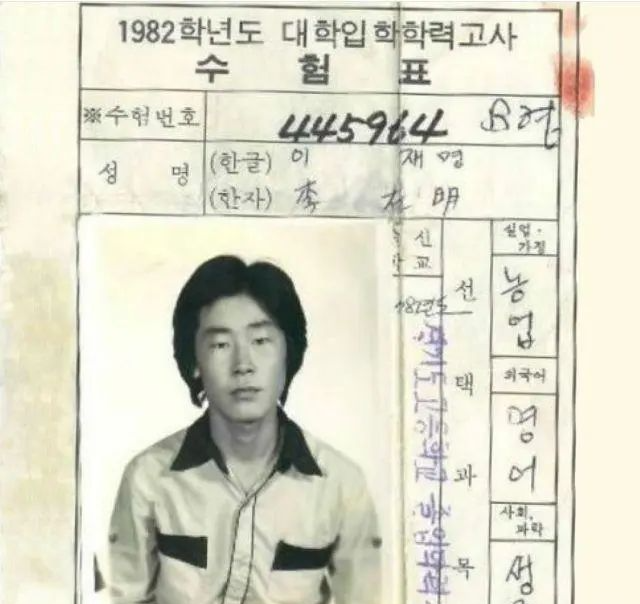 1982학년도 대학입학학력고사
수 험 표
※수험번호 445964 B형
성 명 (한글) 이 재명
(한자) 李 在 明
신
교
선택과목
실업·가정
농업
외국어
영어
사회,과학